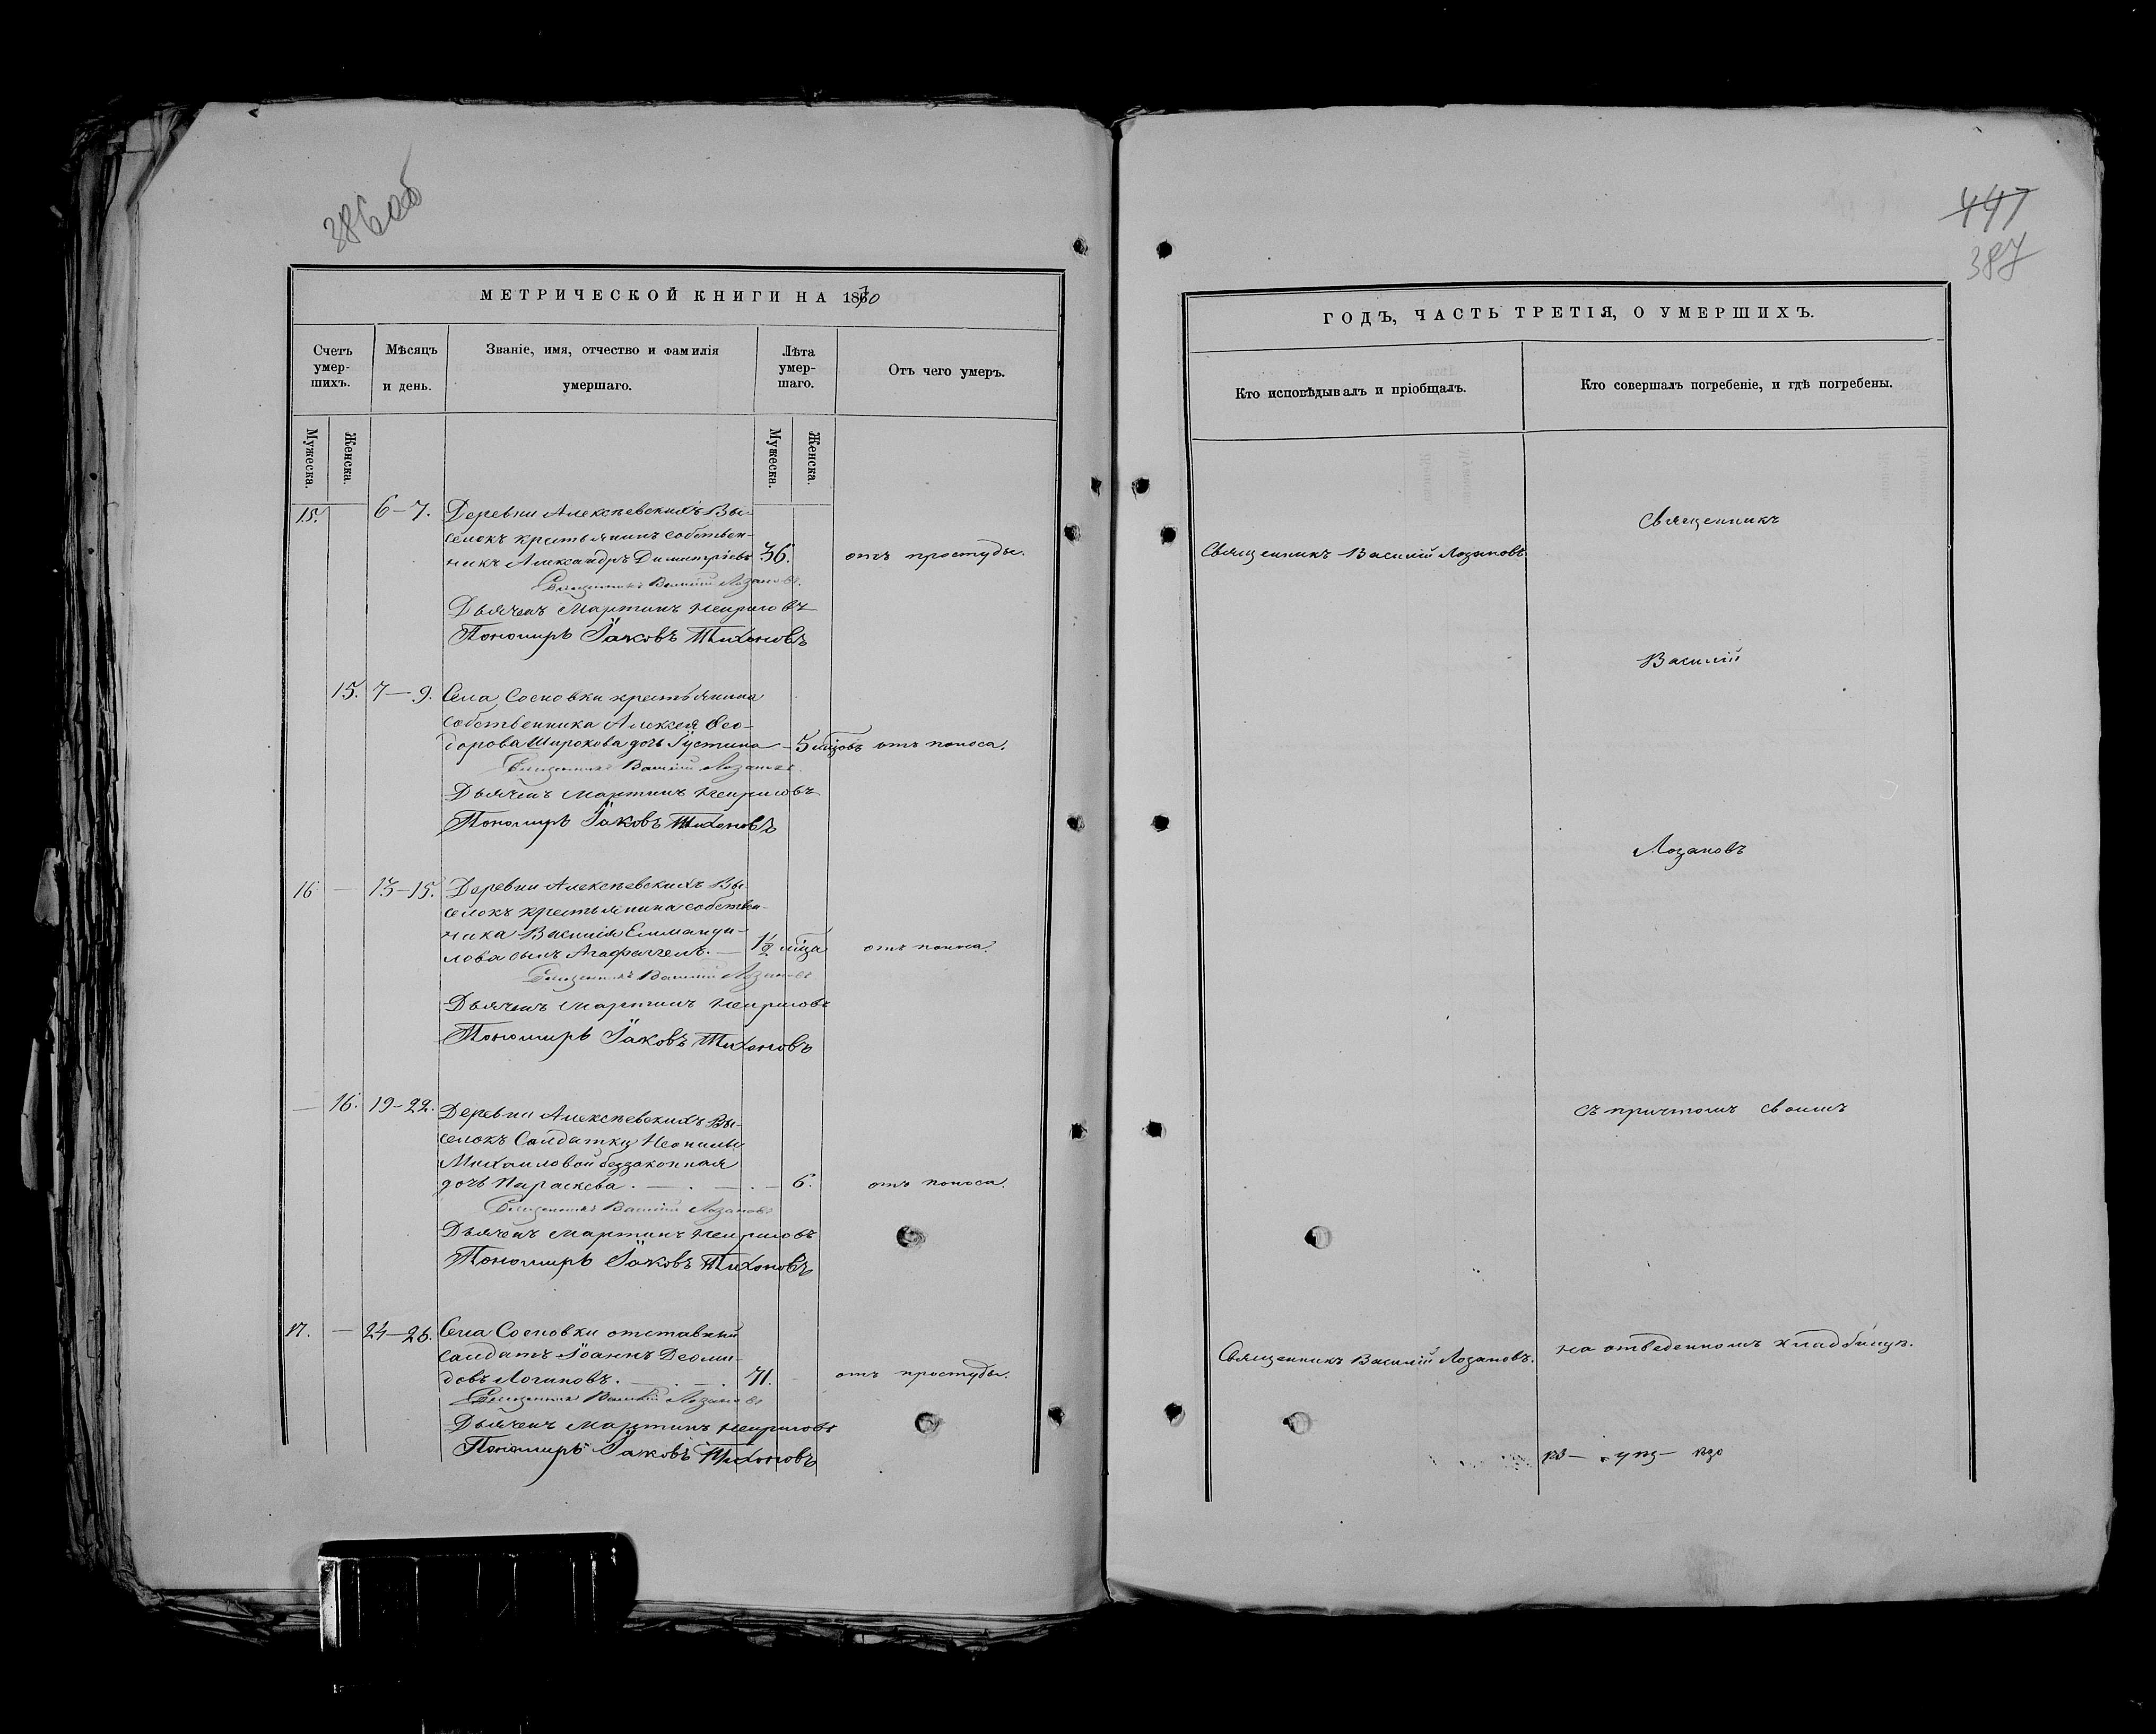 386об
МЕТРИЧЕСКОЙ КНИГИ НА 1870
Счетъ умер-шихъ.
Мѣсяцъ и день.
Званіе, имя, отчество и фамилія умершаго.
Лѣта умер-шаго.
Отъ чего умеръ.
Мужеска.
Женска.
Мужеска.
Женска.
15. 6–7. Деревни Алексѣевскихъ Вы-
селокъ крестьянинъ собствен-
никъ Александръ Димитріевъ 36. отъ простуды.
Священникъ Василій Лозановъ.
Дьячекъ Мартинъ
Пономарь Іаковъ Тихоновъ
15. 7–9. Села Сосновки крестьянина
собственника Алексея Ѳео-
дорова Широкова дочь Іустина – 5 мцовъ отъ поноса.
Священникъ Василій Лозановъ.
Дьячекъ Мартинъ
Пономарь Іаковъ Тихоновъ
16 – 13–15. Деревни Алексѣевскихъ Вы-
селокъ крестьянина собствен-
ника Василія Еммануи-
лова сынъ Агафангелъ. – 1½ мца отъ поноса.
Священникъ Василій Лозановъ
Дьячекъ Мартинъ
Пономарь Іаковъ Тихоновъ
– 16. 19–22. Деревни Алексѣевскихъ Вы-
селокъ Солдатки Неонилы
Михаиловой беззаконная
дочь Параскева. – . – . – 6. отъ поноса.
Священникъ Василій Лозановъ
Дьячекъ Мартинъ
Пономарь Іаковъ Тихоновъ
17. – 24–26. Села Сосновки отставный
солдатъ Іоаннъ Деоми-
довъ Логиновъ. – . – . 71. – отъ простуды.
Священникъ Василій Лозановъ
Дьячекъ Мартинъ
Пономарь Іаковъ Тихоновъ
447
387
ГОДЪ, ЧАСТЬ ТРЕТІЯ, О УМЕРШИХЪ.
Кто исповѣдывалъ и пріобщалъ.
Кто совершалъ погребеніе, и гдѣ погребены.
Священникъ
Священникъ Василій Лозановъ
Василій
Лозановъ
съ причтомъ своимъ
Священникъ Василій Лозановъ.
на отведенномъ кладбищѣ.